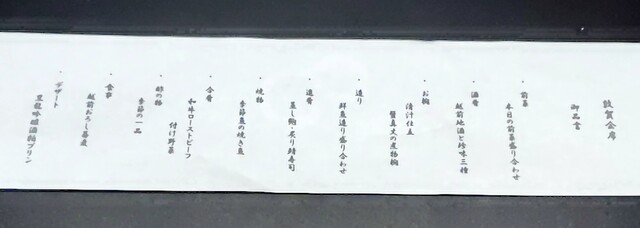 敦賀会席
御品書
・前菜
本日の前菜盛り合わせ
・酒肴
越前地酒と珍味三種
・お椀
清汁仕立
蟹真丈の煮物椀
・造り
鮮魚造り盛り合わせ
・進肴
蒸し鮑・炙り鯖寿司
・焼物
季節魚の焼き魚
・合肴
和味ローストビーフ
付け野菜
・酢の物
季節の一品
・食事
越前おろし蕎麦
・デザート
黒龍吟醸酒粕プリン